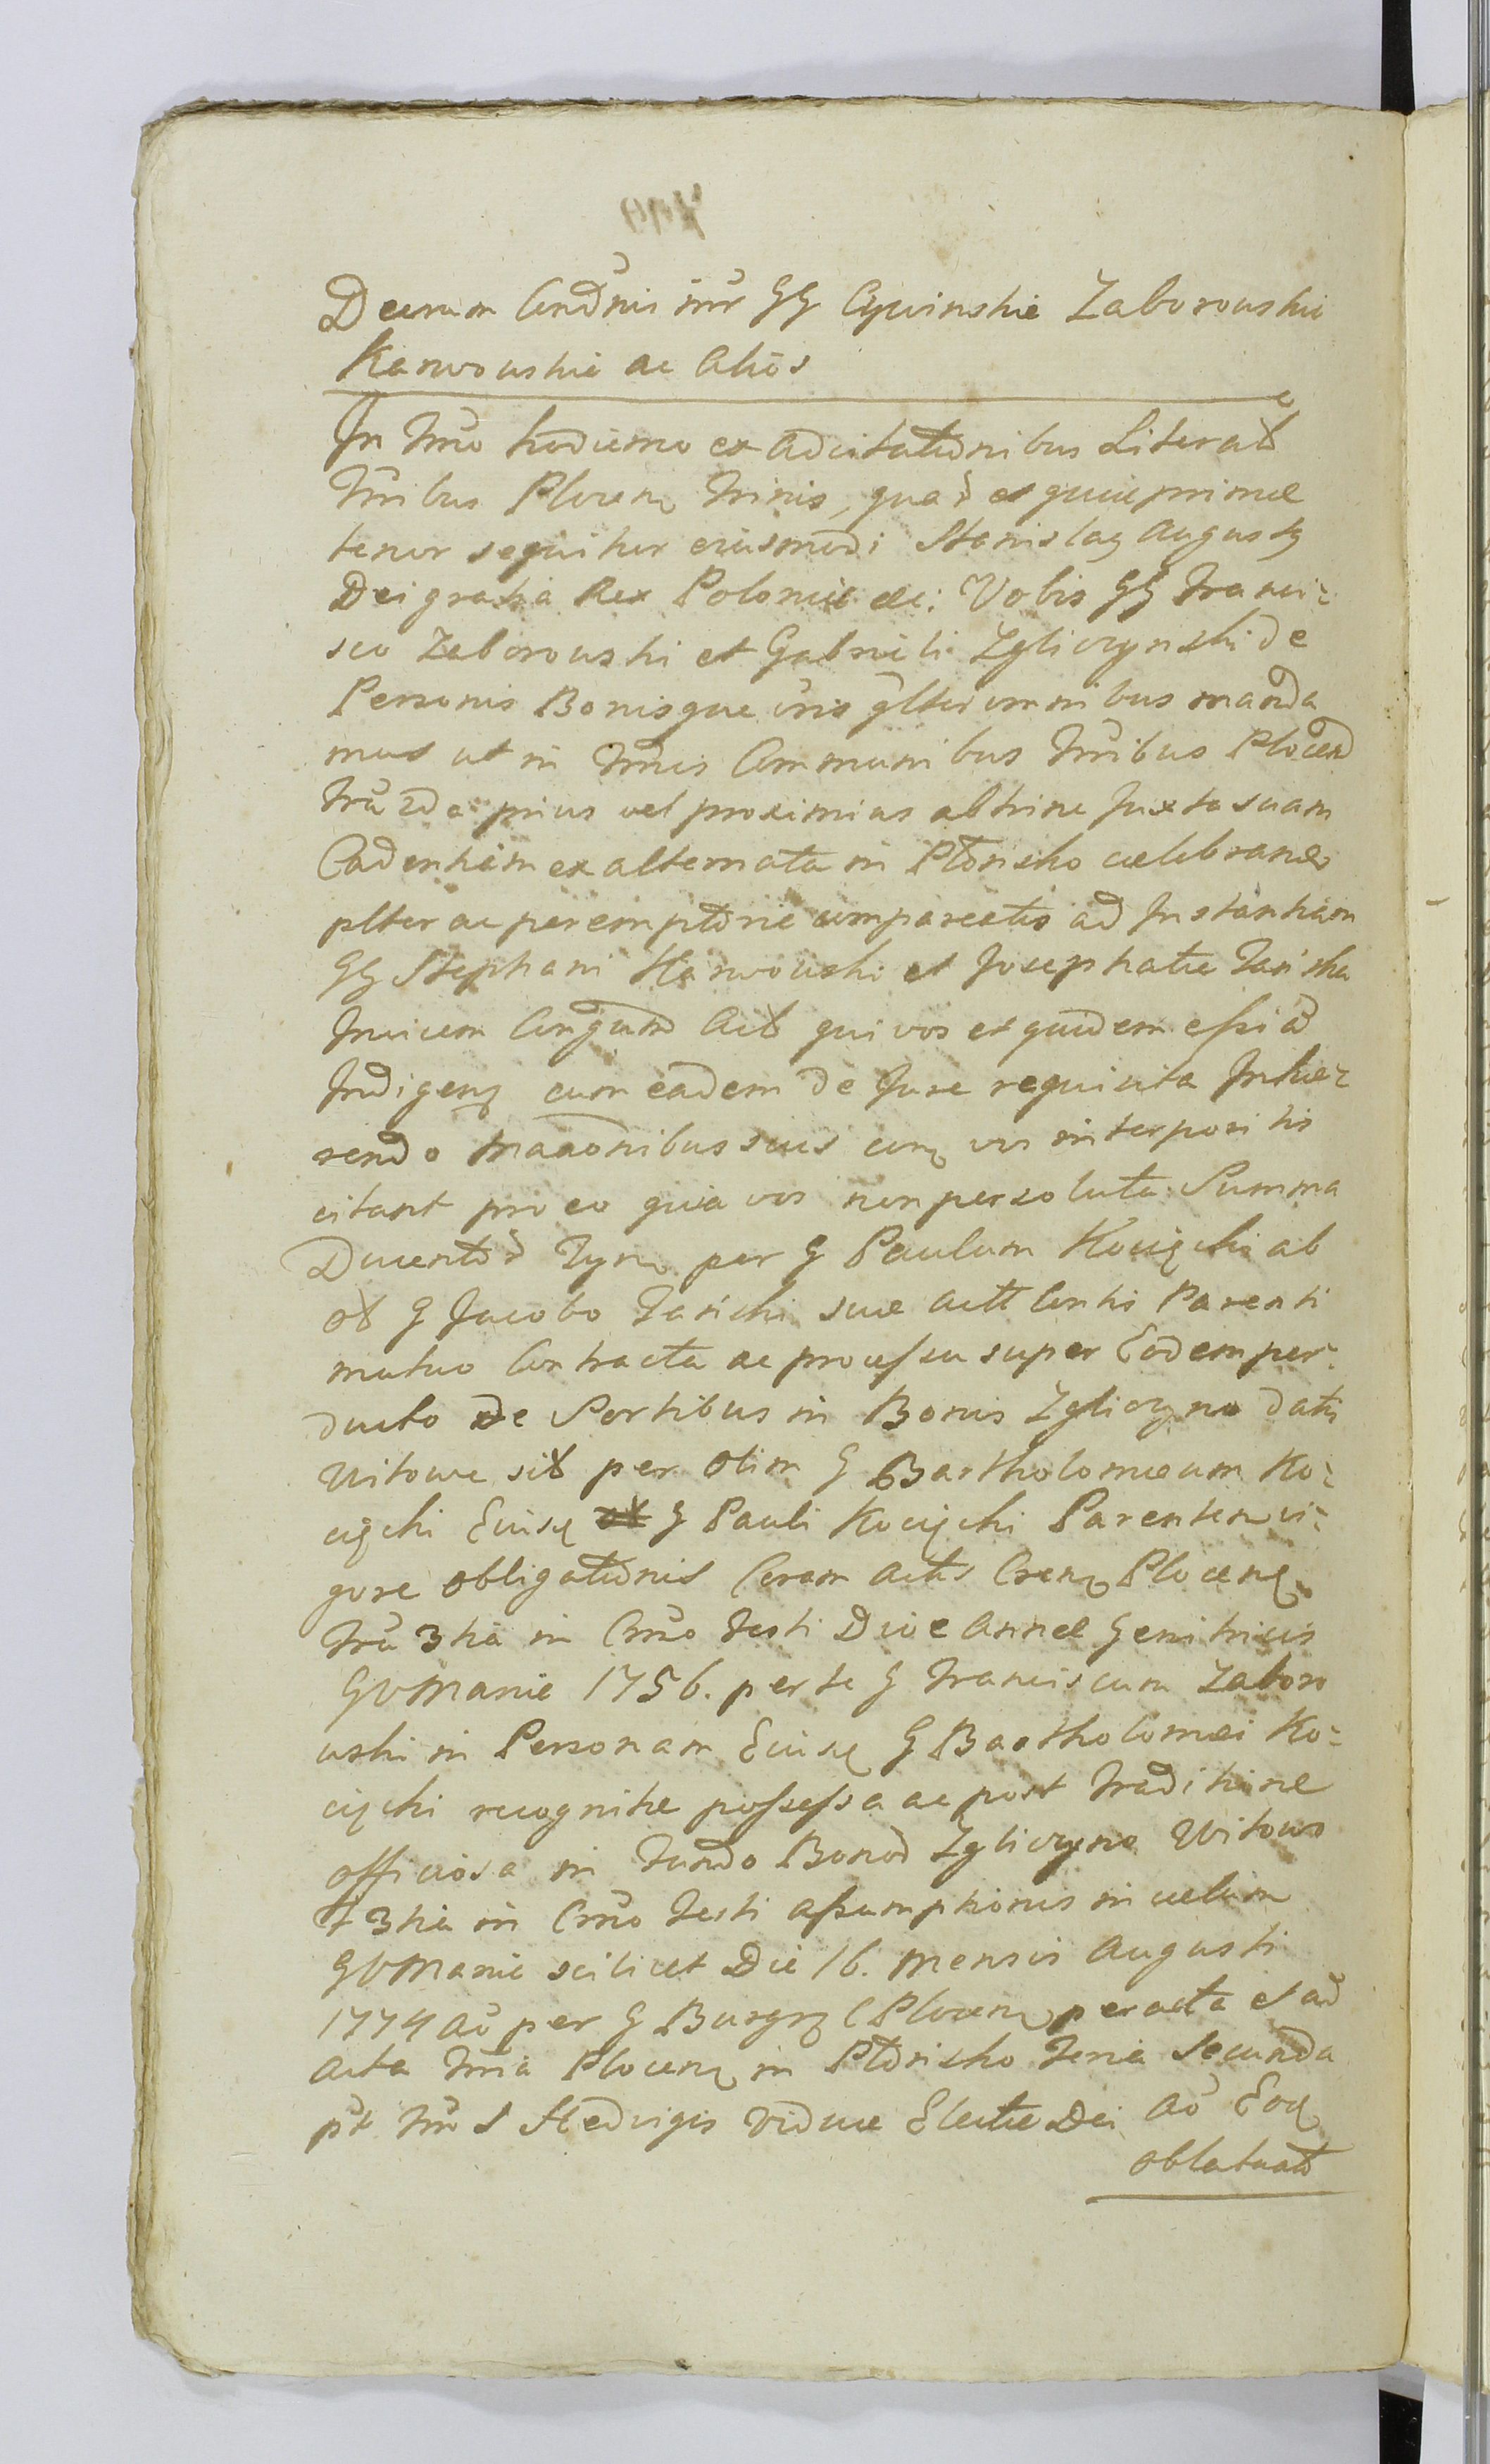 Decrum Condnis inr GG Cywinskie Zaborowskie
Karwowskie ac Alios
In Trno hodierno ex Adcitationibus Literalb
Trribus Plocen Trinis, quar et quie primae
tenor sequitur eiusmodi Stanislaus Augustus
Dei gratia Rex Poloniae etc: Vobis GG Franci-
sco Zaborowski et Gabrieli Zgliczynski de
Personis Bonisque vris glter omnibus manda
mus ut in Trnis Communibus Trribus Plocen
Fria 2da prius vel proximius abhinc Juxta suam
Cadentiam ex alternata in Płonsko caelebrand
plter ac peremptorie compareatis ad Instantiam
GG Stephani Karwowski et Josephatae Jasinska
Invicem Congum Actb qui vos et quidem
Indigen cum eadem de Jure requisita Inhae-
rendo Maaonibus suis cum vis interpositis
citant pro eo quia vos non persoluta Summa
Ducentor Tyn per G Paulum Kocięcki ab
olb G Jacobo Jasicki suae Actt Contis Parenti
mutuo Contracta ac processu super Eodem per-
ducto de Sortibus in Bonis Zgliczyno dati
Witowe sitb per olim G Bartholomaeum Ko-
cięcki Eiusq G Pauli Kocięcki Parentem vi-
gore obligationis Coram Actis Cren Plocen
Fria 3tia in Crno Festi Divae Annae Genitricis
GVMariae 1756. per te G Franciscum Zaboro
wski in Personam Eiusq G Bartholomaei Ko-
cięcki recognitae possessa ac post traditione
officiosa in Fundo Bonor Zgliczyno Witowo
F 3tia in Crno Festi assumptionis in caelum
GVMariae scilicet Die 16. Mensis Augusti
1774 Ao per G Burgr C Plocen peracta et ad
Acta Trria Plocen in Płonsko Feria Secunda
pt Fm S Hedvigis Viduae Electae Dei Ao Eoq
oblatuat